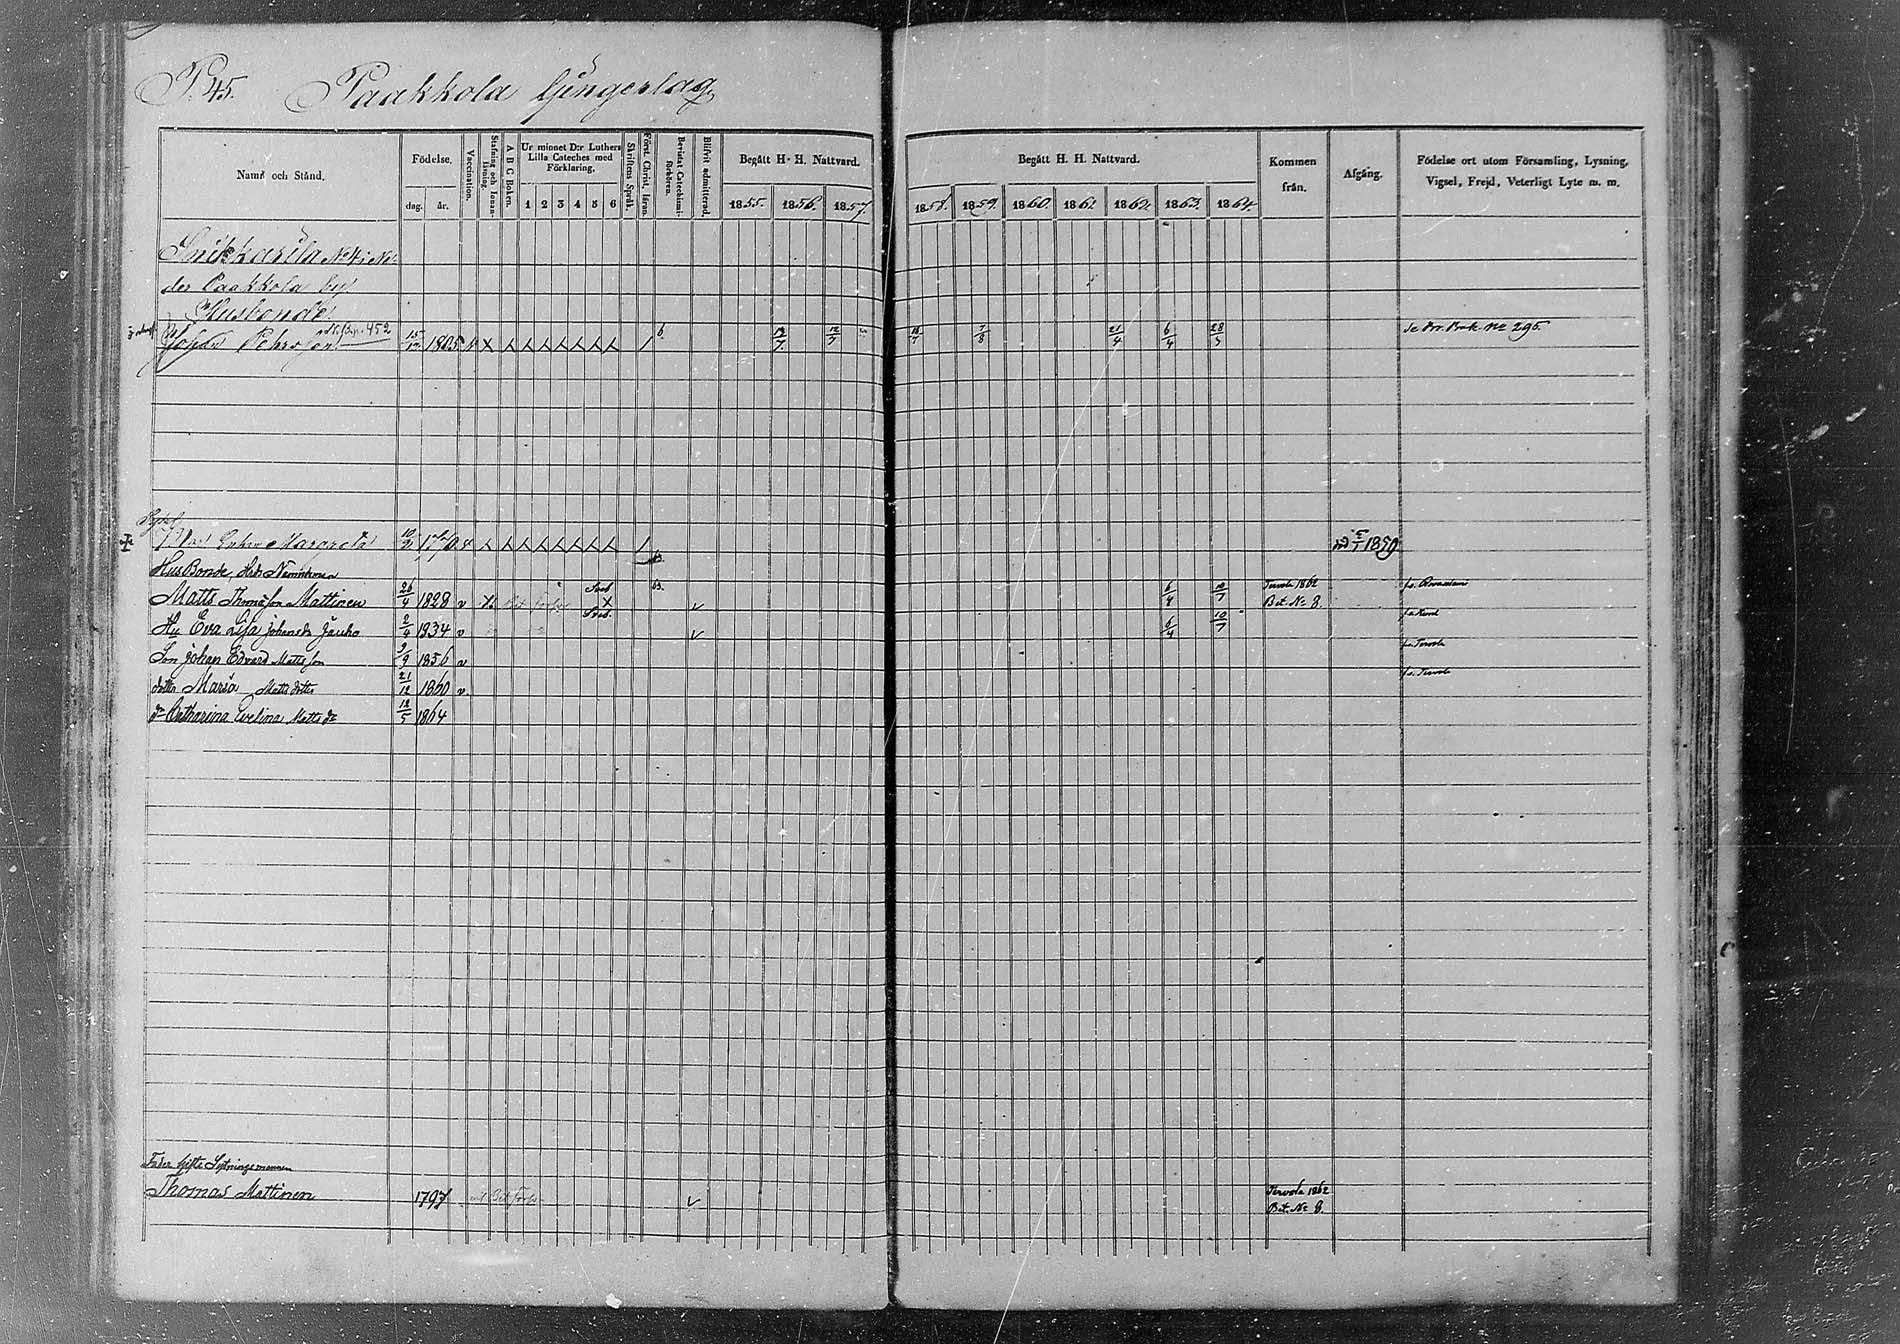 P. 45. Paakkola
Namn och Stånd.
Födelse.
dag. år.
Vaccination.
Stafning och Innan-läsning.
A B C Boken.
Ur minnet D:r Luthers Lilla Cateches med Förklaring.
1 2 3 4 5 6
Skriftens Språk.
Först. Christ. läran.
Bevistat Catechismi-förhören.
Blifvit admitterad.
Begått H. H. Nattvard.
1855. 1856. 1857.
Begått H. H. Nattvard.
1858. 1859. 1860. 1861 1862. 1863. 1864.
Kommen från.
Afgång.
Födelse ort utom Församling, Lysning, Vigsel, Frejd, Veterligt Lyte m. m.
Snikkarila No 4 i Ne-
der Paakkola by
Husbonde
452
Johan Pehrsson 15/12 1805 6 12/7 12/7 18/7 7/8 21/4 6/4 28/7 No 295.
Enkan Margareta 10/2 1859
HusBonde,
Matts Thomasson Mattinen 26/4 1828 v X v 6/4 10/7 Tervola 1862 Bet. No 8.
Hu Eva Lisa Johansdr Jauho 2/4 1834 v v 6/4 10/7
Son Johan Edvard Mattsson 9/9 1856 v fr. Tervola
dotter Maria Matts dotter 21/12 1860 v fr. Tervola
dr Catharina Evelina Matts dr 12/5 1864
Fader Gifte Sytningsmannen
Thomas Mattinen 1797 v Tervola 1862
Bet. No 8.